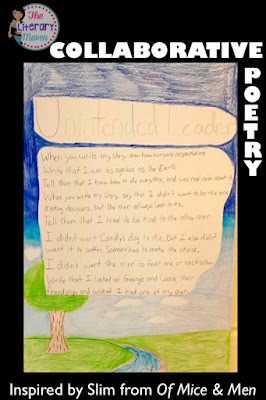 The
Literary
Maven
COLLABORATIVE
POETRY
Unintended Leader
When you write my story, show how everyone respected me
Write that I am as ageless as the Earth
Tell them that I knew how to do everything, and was real calm about it
When you write my story, say that I didn't want to be the one
making decisions, but the men always look to me.
Tell them that I tried to be kind to the other men
I didn't want Candy's dog to die, but I also didn't
want it to suffer. Someone had to make the choice.
I didn't want the men to fear me or each other
Write that I looked at George and Lennie, their
friendship and wished I had one of my own.
Inspired by Slim from Of Mice & Men